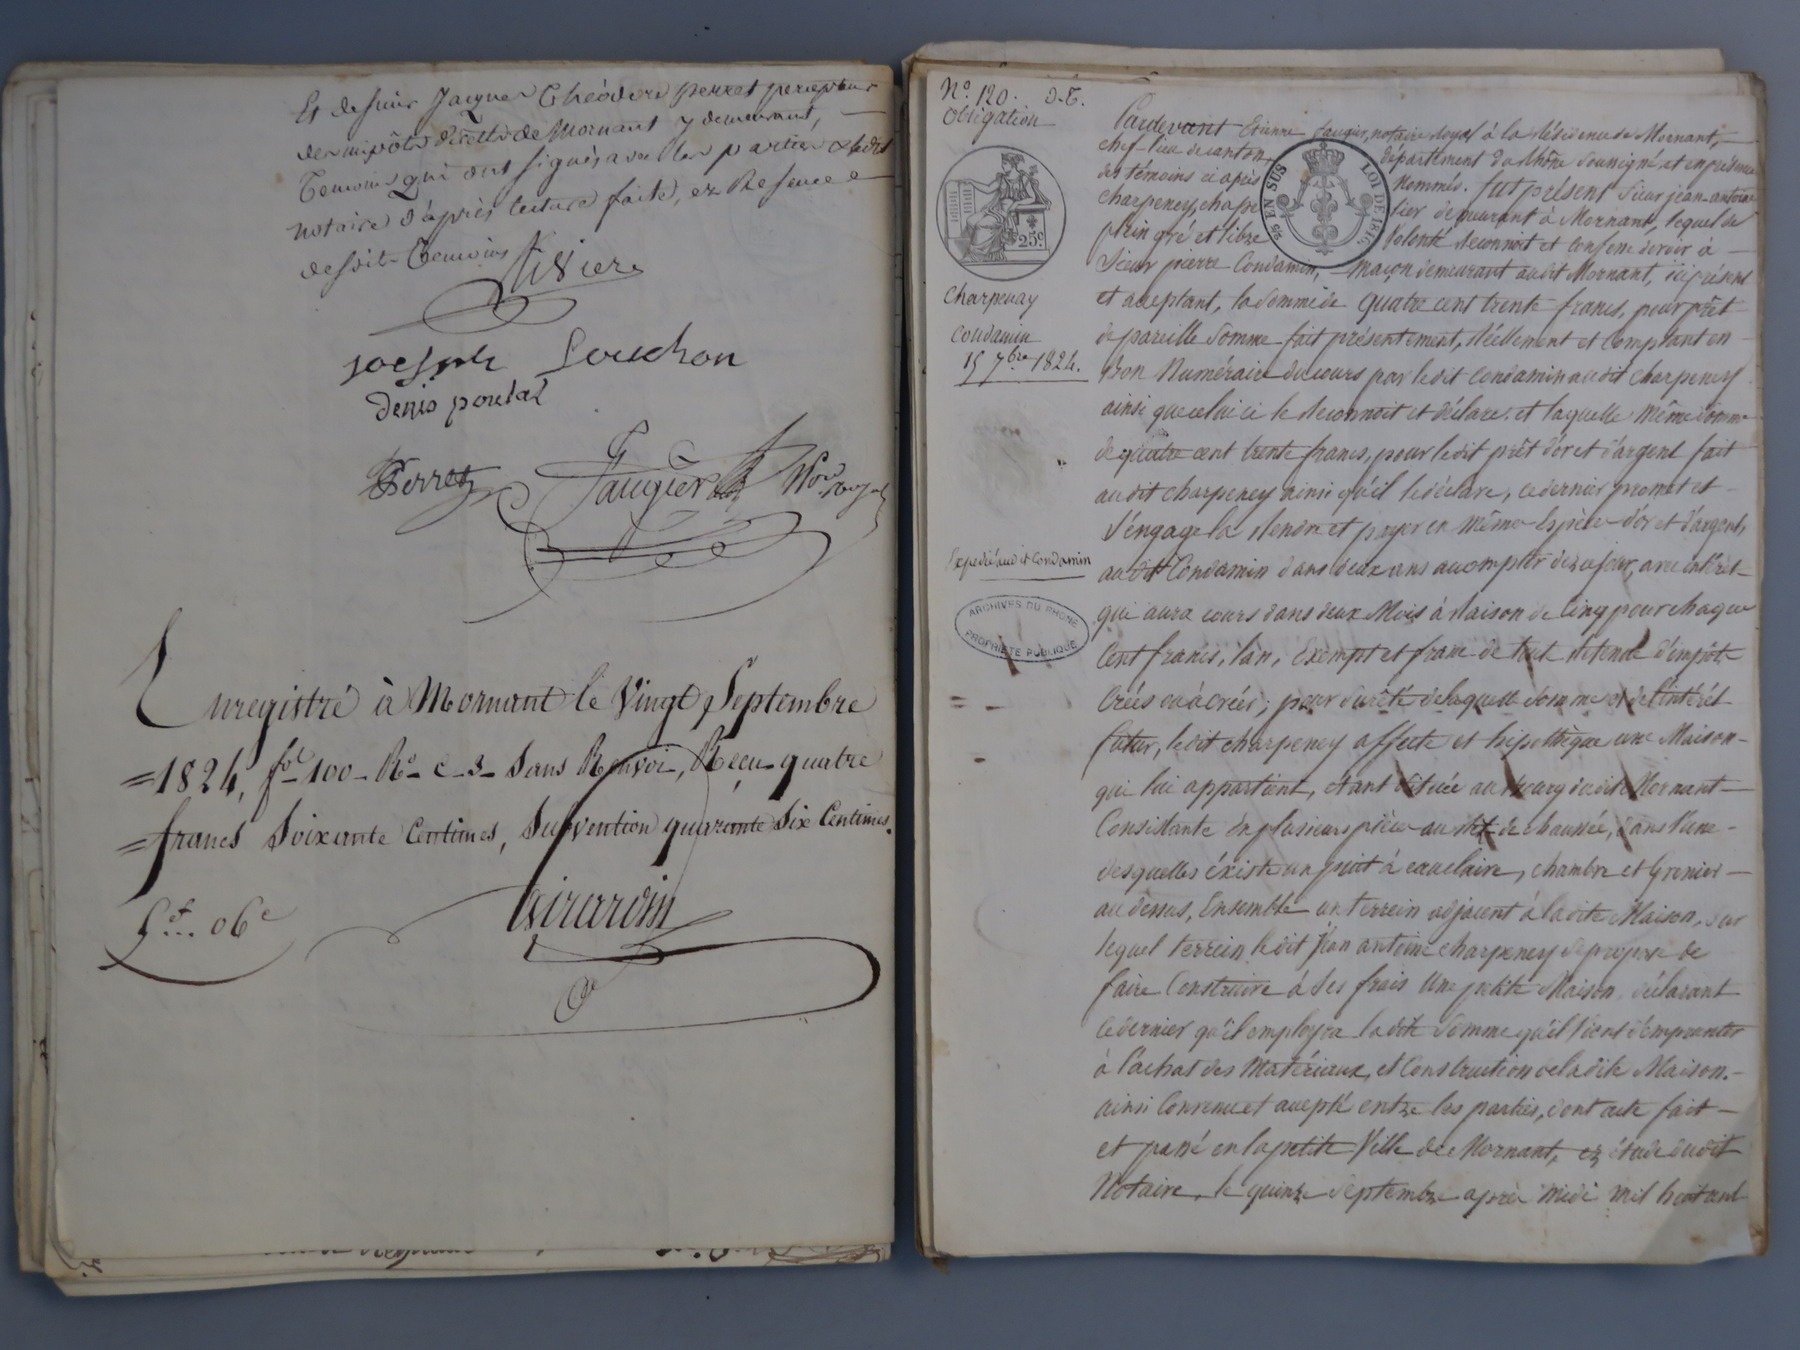 Et de sieur Jacques Théodore perret percepteur
des impôts directs de Mornant y demeurant,
temoins qui ont signé avec les parties & ledit
notaire d'après lecture faite, en Présence
desdits temoins
Joseph Souchon
denis poulat
Perret Faugier Not. royal
Enregistré à Mornant le Vingt Septembre
=1824, f° 100 R° c 3 Sans Renvoi, Reçu quatre
=francs Soixante Centimes, Subvention quarante Six Centimes.
5f.. 06c
Girardin
N° 120. D.T.
Obligation
25c
Charpenay
Condamin
15 7bre 1824.
Expedié audit Condamin
ARCHIVES DU RHONE
PROPRIÉTÉ PUBLIQUE
EN SUS LOI DE 1816
Pardevant Etienne faugier, notaire royal à la résidence de Mornant,
chef-lieu de canton, département du Rhône soussigné, et en présence
des témoins ci après Nommés. fut présent Sieur jean-antoine
charpeney, chapelier demeurant à Mornant, lequel de
plein gré et libre Volonté reconnoit et confesse devoir à
Sieur pierre Condamin, maçon demeurant audit Mornant, ici présent
et acceptant, la Somme de quatre cent trente francs, pour prêt
de pareille Somme fait présentement, réellement et Comptant en
bon Numéraire du cours par ledit Condamin audit Charpeney
ainsi que celui ci le reconnoit et déclare. et laquelle Même Somme
de quatre cent trente francs, pour ledit prêt d'or et d'argent fait
audit charpeney ainsi qu'il le déclare, ce dernier promet et
S'engage la rendre et payer en Même Espèce d'or et d'argent,
audit Condamin dans deux ans acompter de ce jour, avec intérêt
qui aura cours dans deux Mois à raison de Cinq pour chaque
Cent francs, l'an, Exempt et franc de tout retenue d'impôts
Créés ou à créer; pour sureté de laquelle Somme et de l'intérêt
futur, ledit charpeney affecte et hipothèque une Maison
qui lui appartient, étant située au bourg dudit Mornant
Consistante en plusieurs pièces au rez de chaussée, dans l'une
desquelles éxiste un puit à eau claire, chambre et Grenier
au dessus, Ensemble un terrein adjacent à ladite Maison, sur
lequel terrein ledit Jean antoine charpeney se propose de
faire Construire à Ses frais Une petite Maison, déclarant
ce dernier qu'il employra ladite Somme qu'il vient d'emprunter
à l'achat des Matériaux, et Construction de ladite Maison.
ainsi Convenu et accepté entre les parties, dont acte fait
et passé en la petite Ville de Mornant, en étude dudit
Notaire, le quinze Septembre après midi mil huit cent